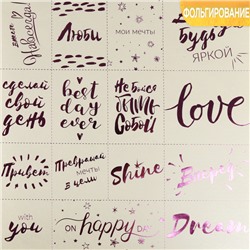 ФОЛЬГИРОВАНИЕ
навсегда
Люби
мои мечты
Будь
яркой
сделай
свой
день
best
day
ever
Не бойся
быть
собой!
love
Привет
Превращай
мечты
в цели
Shine
Вперёд
with
you
ON happy DAY
Dream